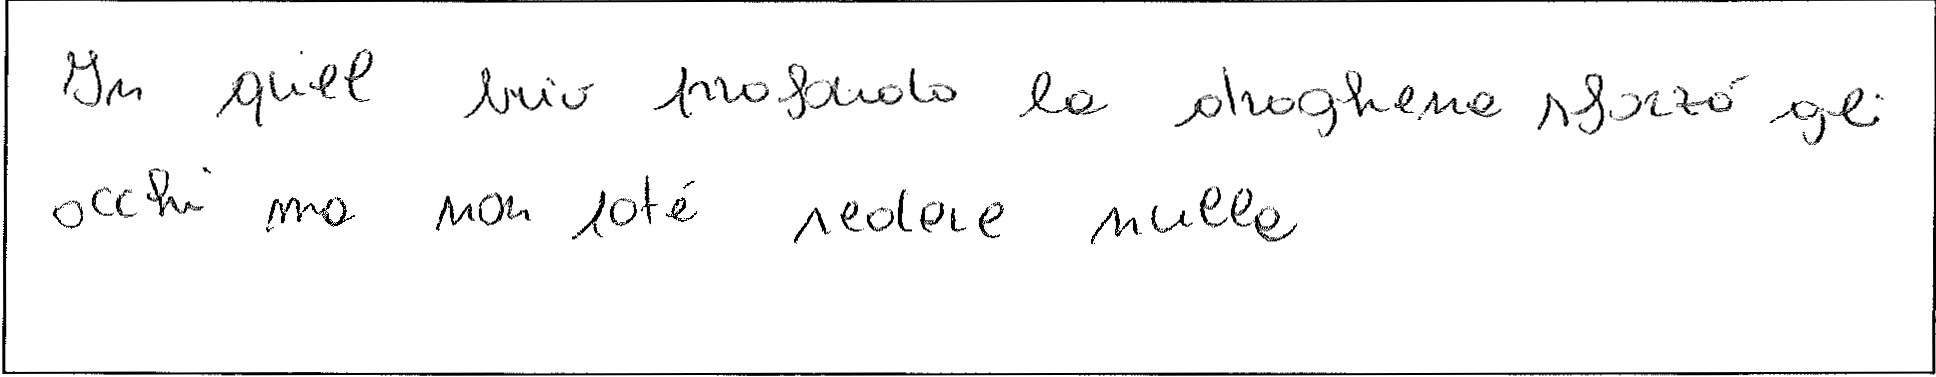 In quell buio profondo la draghena sforzó gli
occhi ma non poté vedere nulla